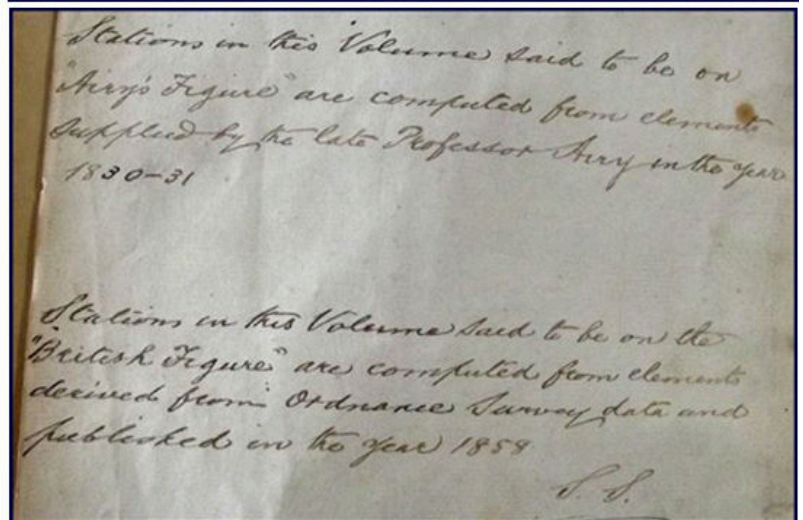 Stations in this Volume said to be on
"Airy's Figure" are computed from elements
supplied by the late Professor Airy in the year
1830-31
Stations in this Volume said to be on the
"British Figure" are computed from elements
derived from Ordnance Survey data and
published in the year 1858
S. S.